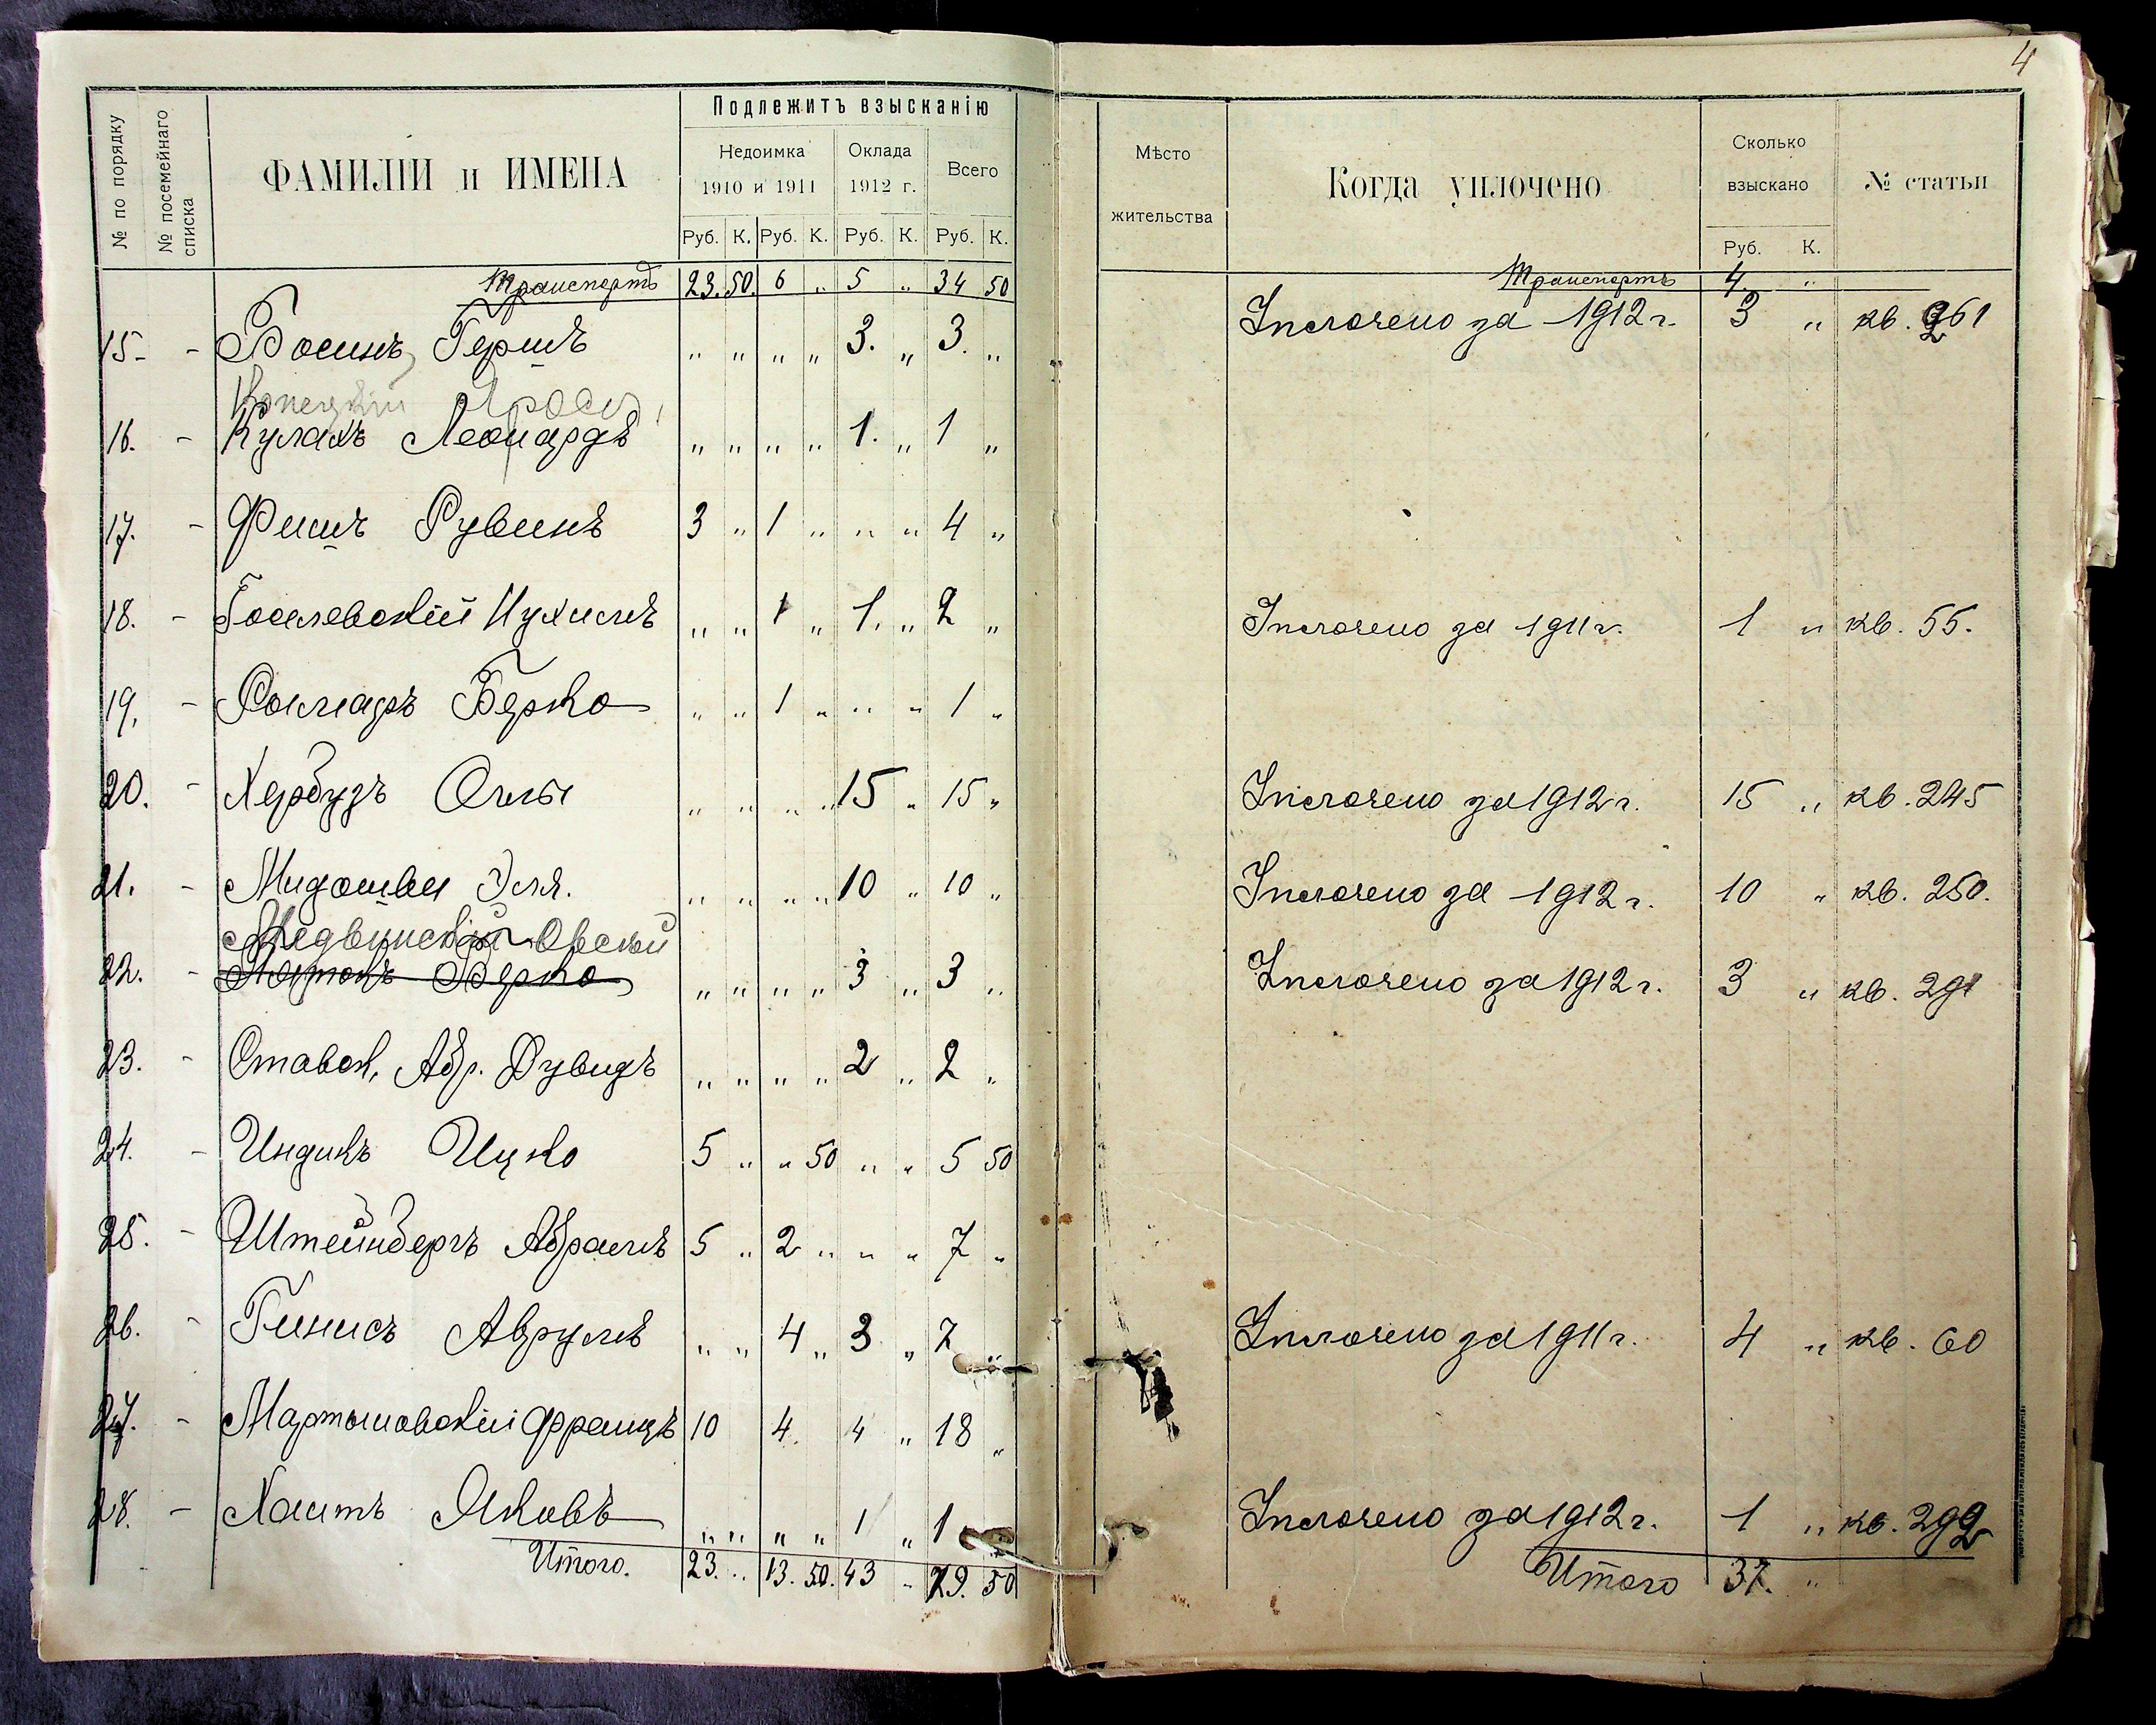 4
№ по порядку
№ посемейнаго списка
ФАМИЛІИ и ИМЕНА
Подлежитъ взысканію
Недоимка 1910 и 1911
Оклада 1912 г.
Всего
Руб. К. Руб. К. Руб. К. Руб. К.
Мѣсто жительства
Когда уплочено
Сколько взыскано
Руб. К.
№ статьи
Транспортъ 23. 50. 6 „ 5 „ 34 50
Транспортъ 4. „
15. - Босинъ, Гершъ „ „ „ „ 3. „ 3. „ Уплочено за 1912 г. 3 „ кв. 261
16. - Кулакъ Леонардъ „ „ „ „ 1. „ 1 „
17. - Фишъ Рувинъ 3 „ 1 „ „ „ 4 „
18. - Нухимъ „ „ 1 „ 1. „ 2 „ Уплочено за 1911 г. 1 „ кв. 55.
19. - Берко „ „ 1 „ „ „ 1 „
20. - Хербузъ „ „ „ „ 15 „ 15 „ Уплочено за 1912 г. 15 „ кв. 245
21. - Эля. „ „ „ „ 10 „ 10 „ Уплочено за 1912 г. 10 „ кв. 250.
Медвинскій Овсѣй
22. - Берко „ „ „ „ 3 „ 3 „ Уплочено за 1912 г. 3 „ кв. 291
23. - Ставск, Абр. Дувидъ „ „ „ „ 2 „ 2 „
24. - Индикъ Ицко 5 „ „ 50 „ „ 5 50
25. - Штейнбергъ Абрамъ 5 „ 2 „ „ „ 7 „
26. - Гинисъ Аврумъ „ „ 4 „ 3 „ 7 „ Уплочено за 1911 г. 4 „ кв. 60
27. - Мартыновскій Францъ 10 4. 4 „ 18 „
28. - Хаитъ Яковъ „ „ „ „ 1 „ 1 „ Уплочено за 1912 г. 1 „ кв. 292
Итого. 23. „ 13. 50. 43 „ 79. 50
Итого 37. „